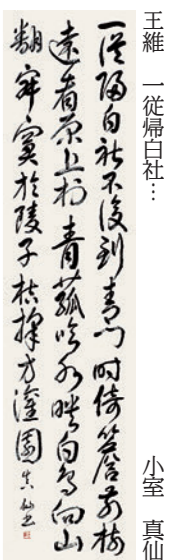 王維 一従帰白社… 小室 真仙
一従歸白社不復到青門時倚簷前樹
遠看原上村青菰臨水映白鳥向山
翻寂寞於陵子桔槔方灌園 真仙書